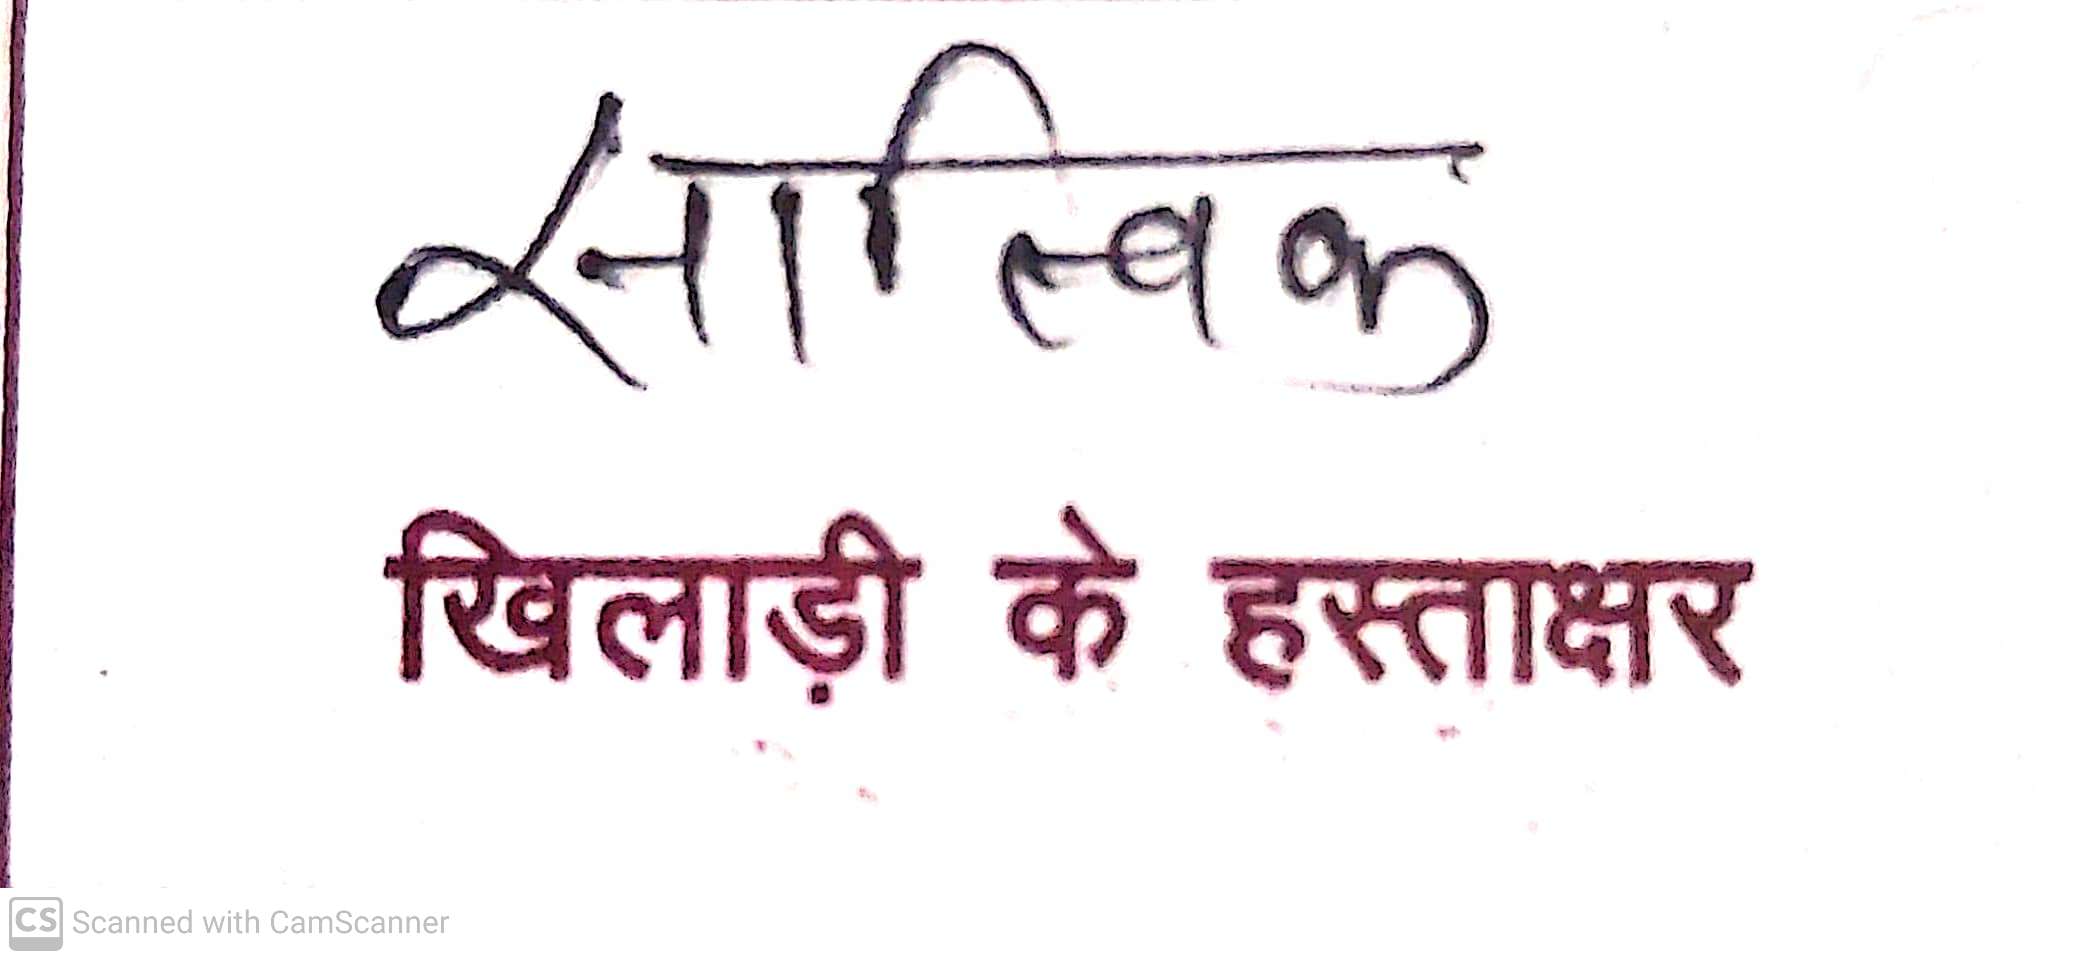 सात्विक
खिलाड़ी के हस्ताक्षर
CS Scanned with CamScanner